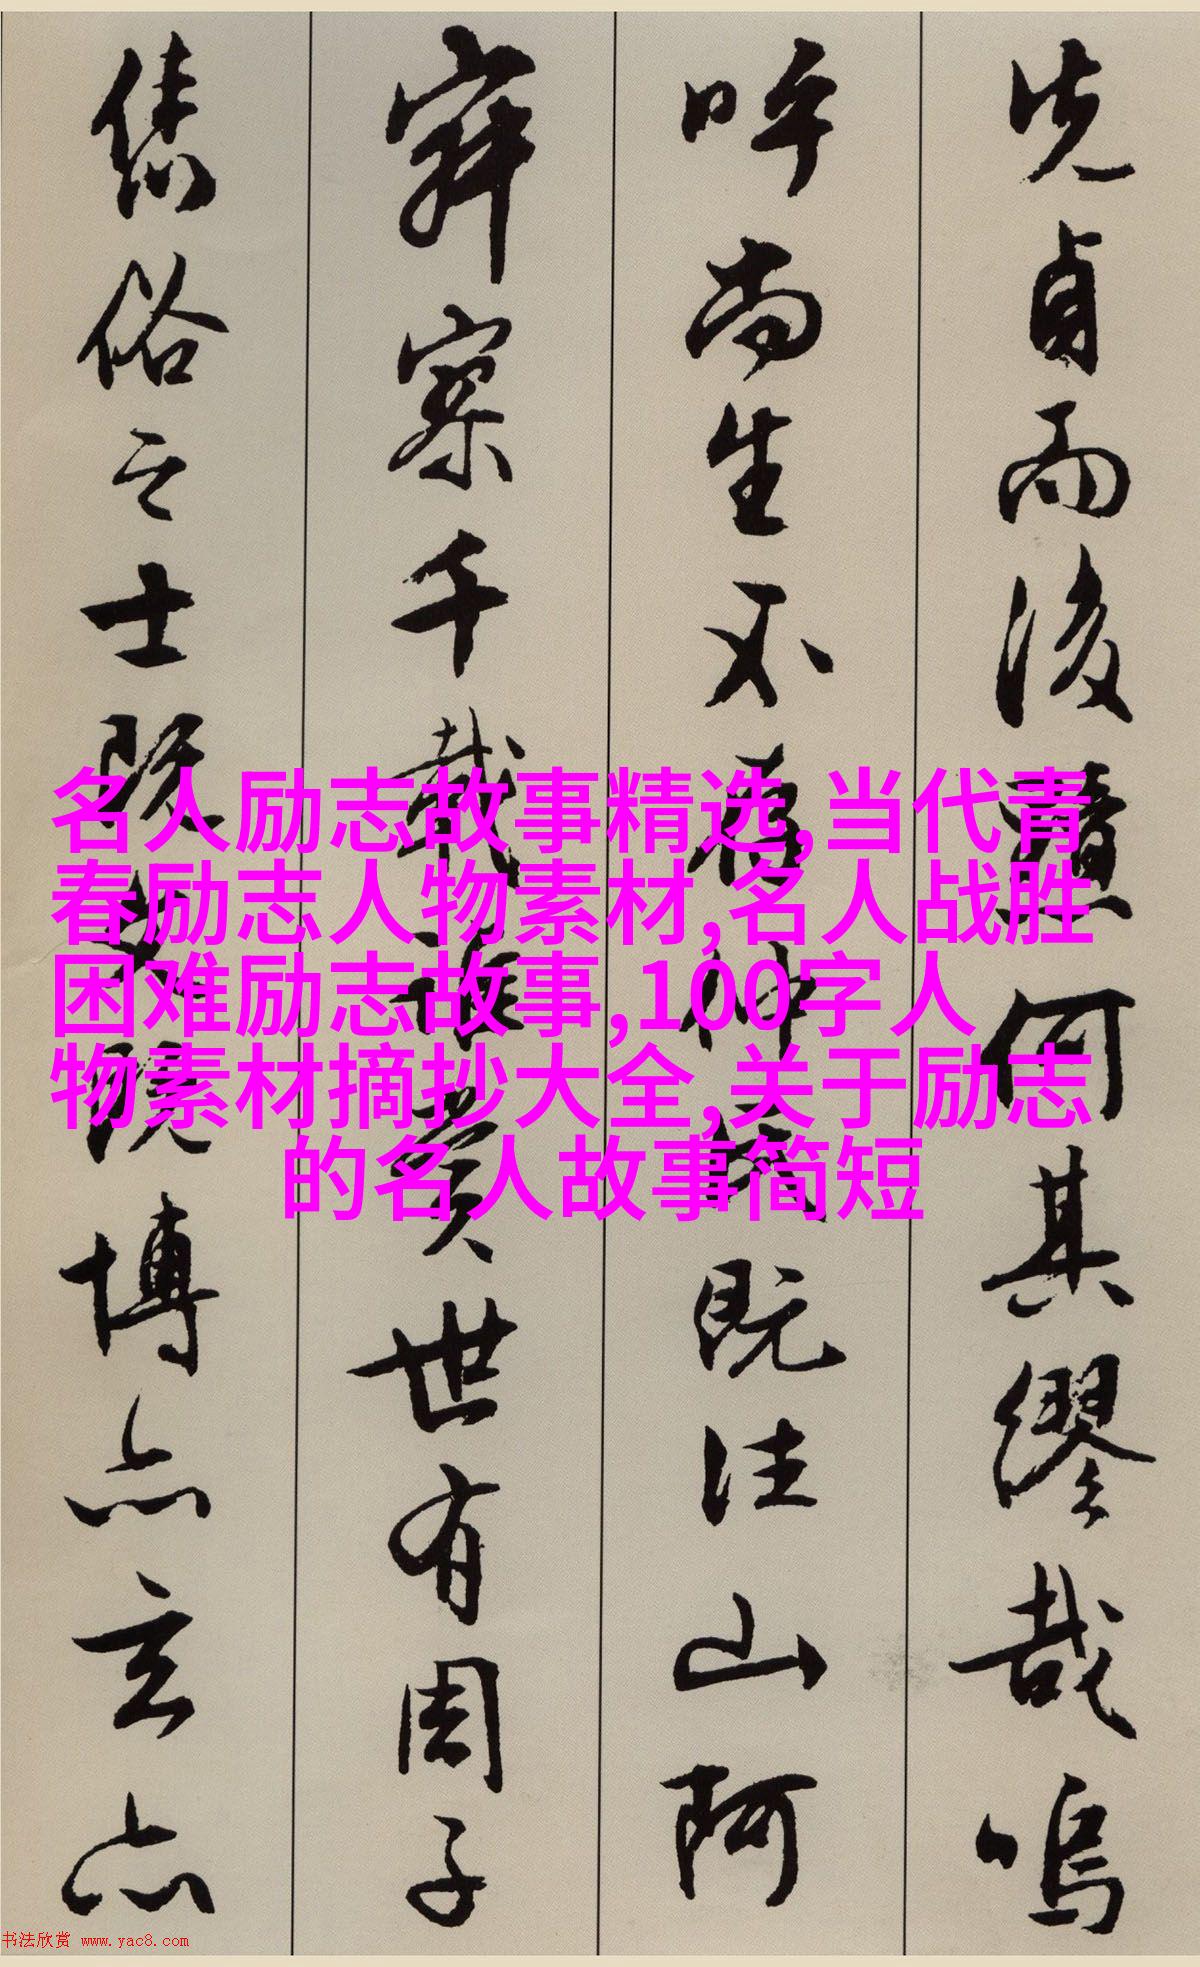 先貞而後黷何其繆哉嗚
呼尚生不仲既往山阿
寂寥千載誰賞世有周子
儁俗之士既文既博亦玄亦
名人励志故事精选,当代青
春励志人物素材,名人战胜
困难励志故事,100字人
物素材摘抄大全,关于励志
的名人故事简短
书法欣赏 www.yac8.com